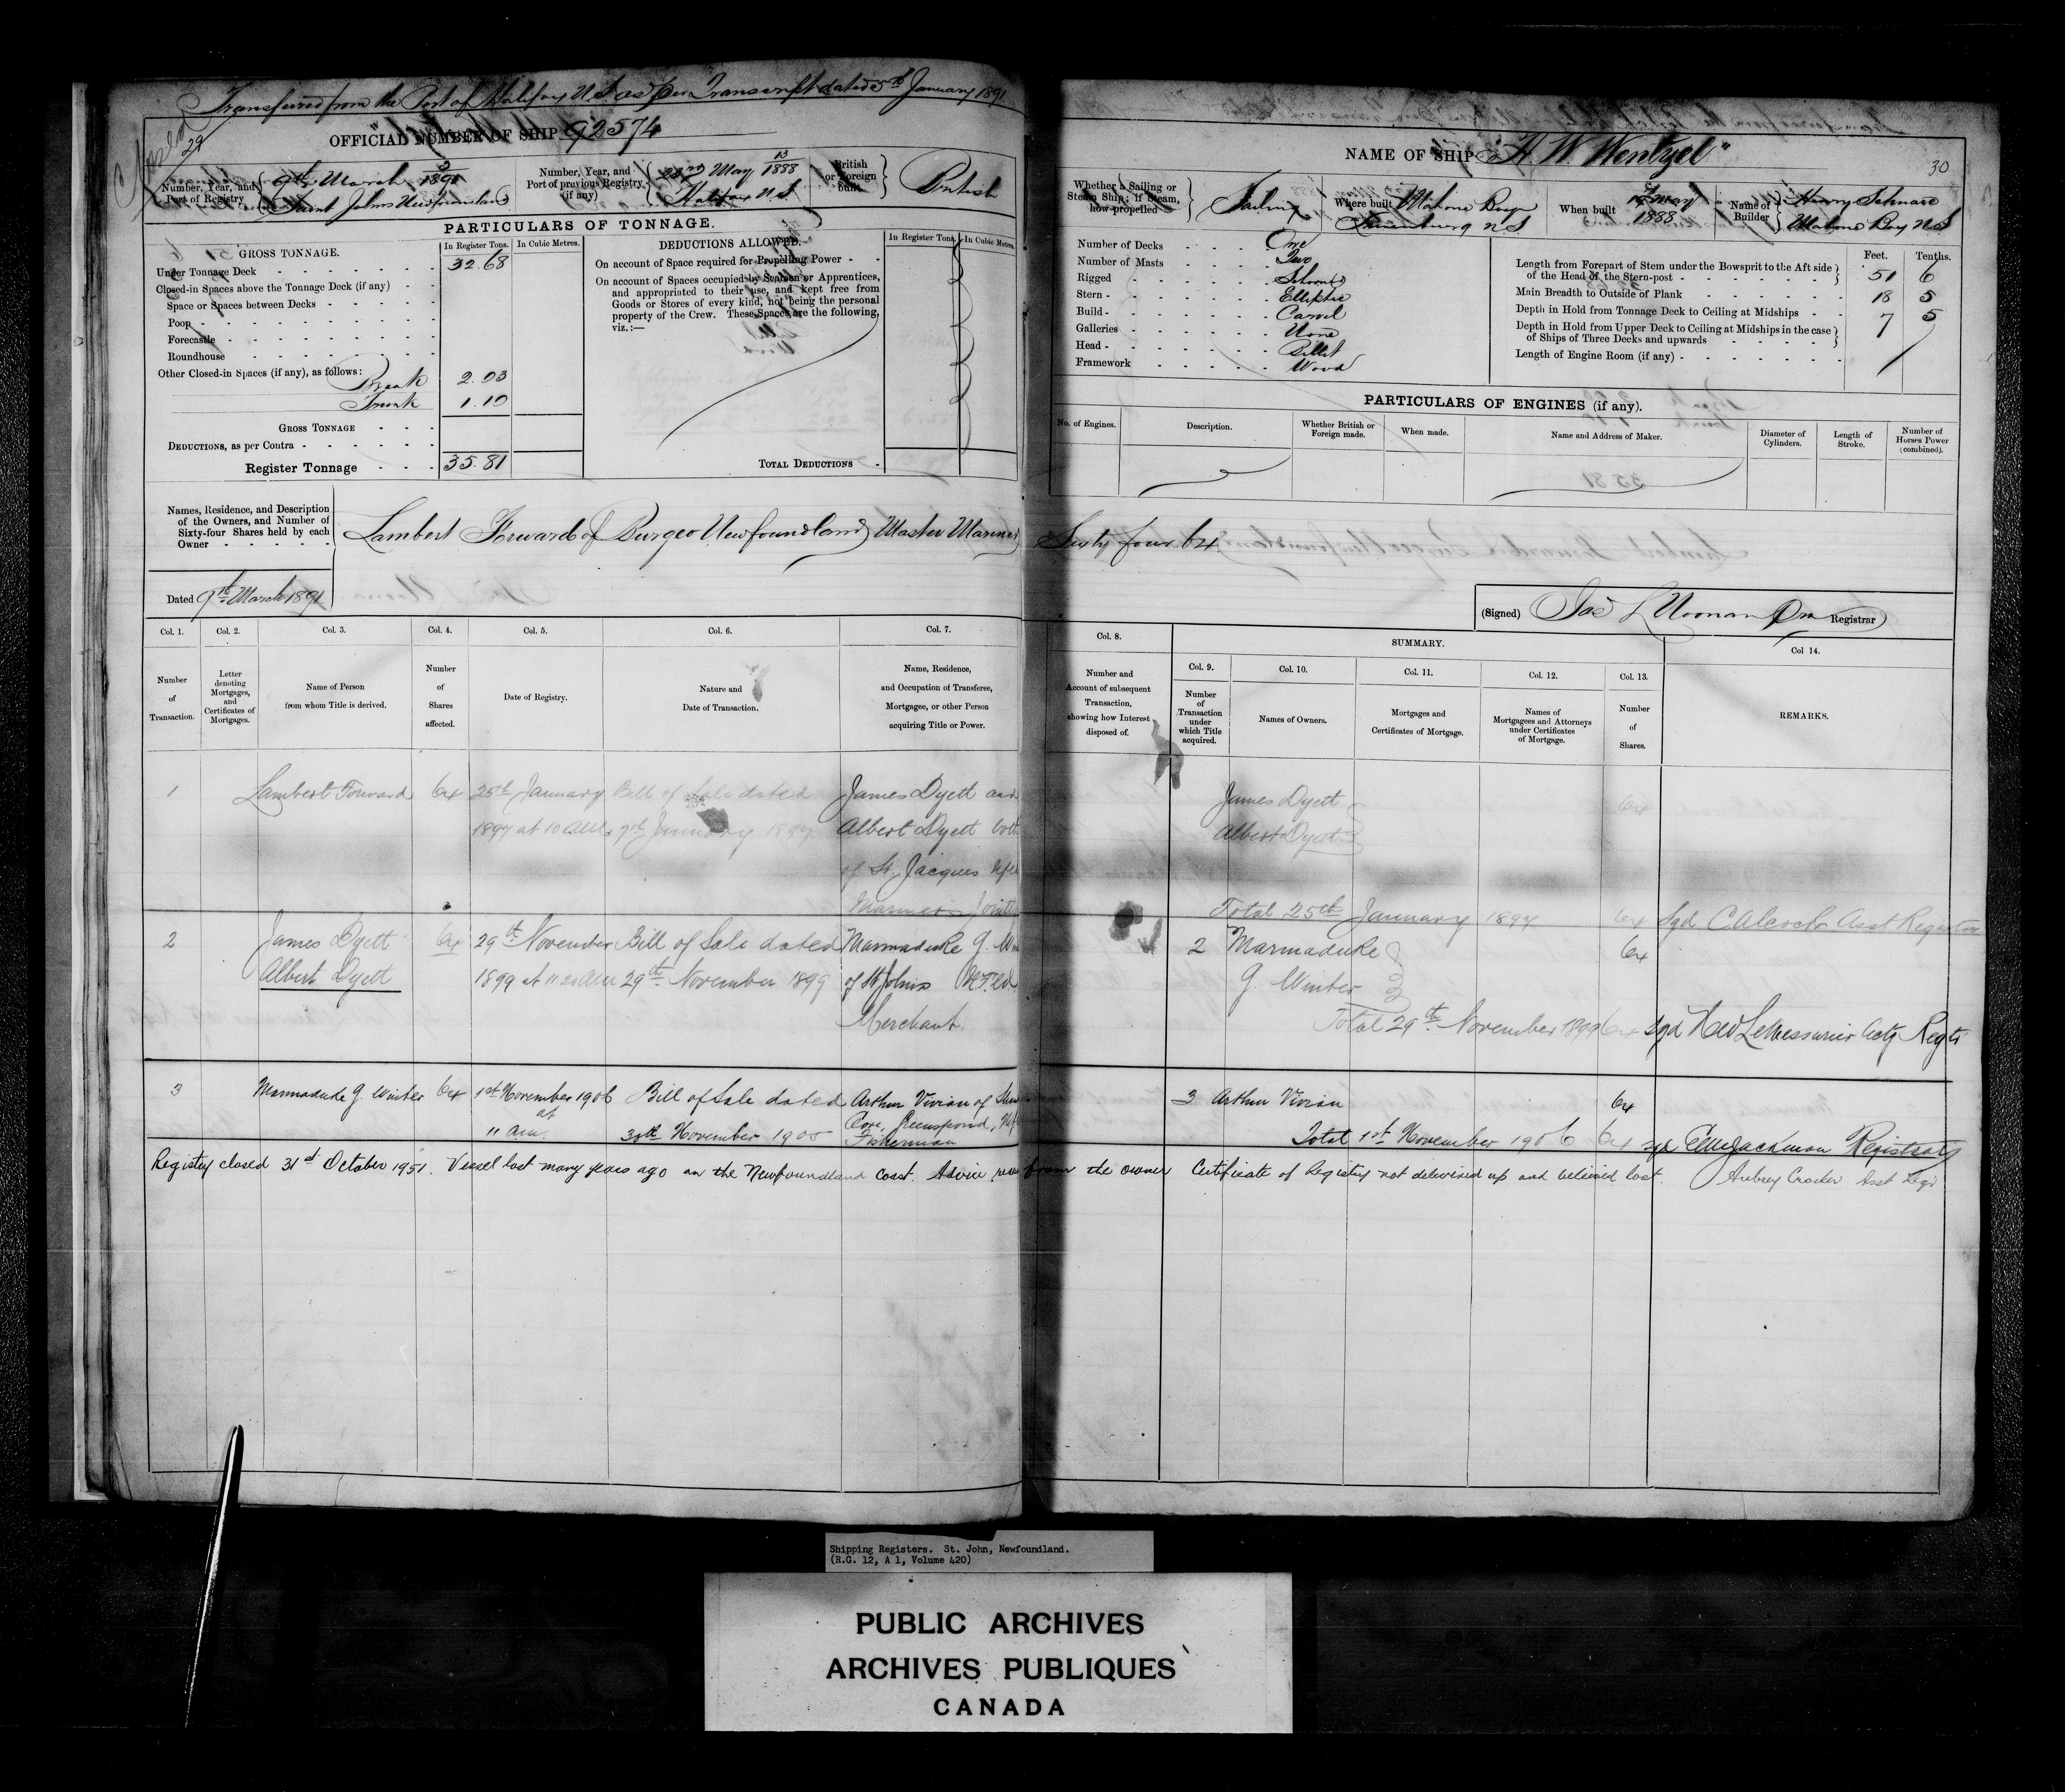 Transferred from the Port of Halifax N.S. as per Transcript dated 5th January 1891
Closed
29
OFFICIAL NUMBER OF SHIP 92574
Number, Year, and Port of Registry
9th March 2/1891
Saint Johns Newfoundland
Number, Year, and Port of previous Registry (if any)
22nd May 13/1888
Halifax N.S.
British or Foreign built
British
PARTICULARS OF TONNAGE.
GROSS TONNAGE.
In Register Tons.
In Cubic Metres.
Under Tonnage Deck 32.68
Closed-in Spaces above the Tonnage Deck (if any)
Space or Spaces between Decks
Poop
Forecastle
Roundhouse
Other Closed-in Spaces (if any), as follows:
Break 2.03
Trunk 1.10
GROSS TONNAGE
DEDUCTIONS, as per Contra
Register Tonnage 35.81
DEDUCTIONS ALLOWED.
In Register Tons.
In Cubic Metres.
On account of Space required for Propelling Power
On account of Spaces occupied by Seamen or Apprentices,
and appropriated to their use, and kept free from
Goods or Stores of every kind, not being the personal
property of the Crew. These Spaces are the following,
viz.:—
TOTAL DEDUCTIONS
Names, Residence, and Description
of the Owners, and Number of
Sixty-four Shares held by each
Owner
Lambert Forward of Burgeo Newfoundland Master Mariner Sixty four 64
Dated 9th March 1891
NAME OF SHIP "H. W. Wentzel"
30
Whether a Sailing or Steam Ship; if Steam, how propelled
Sailing
Where built
Mahone Bay
Lunenburg N.S.
When built
May
1888
Name of Builder
Henry Schnare
Mahone Bay N.S
Number of Decks One
Number of Masts Two
Rigged Schooner
Stern Elliptic
Build Carvel
Galleries None
Head Billet
Framework Wood
Feet. Tenths.
Length from Forepart of Stem under the Bowsprit to the Aft side
of the Head of the Stern-post 51 6
Main Breadth to Outside of Plank 18 5
Depth in Hold from Tonnage Deck to Ceiling at Midships 7 5
Depth in Hold from Upper Deck to Ceiling at Midships in the case
of Ships of Three Decks and upwards
Length of Engine Room (if any)
PARTICULARS OF ENGINES (if any).
No. of Engines.
Description.
Whether British or Foreign made.
When made.
Name and Address of Maker.
Diameter of Cylinders.
Length of Stroke.
Number of Horses Power (combined).
(Signed) Jas L Noonan Registrar
Col. 1. Col. 2. Col. 3. Col. 4. Col. 5. Col. 6. Col. 7. Col. 8.
Number of Transaction.
Letter denoting Mortgages, and Certificates of Mortgages.
Name of Person from whom Title is derived.
Number of Shares affected.
Date of Registry.
Nature and Date of Transaction.
Name, Residence, and Occupation of Transferee, Mortgagee, or other Person acquiring Title or Power.
Number and Account of subsequent Transaction, showing how Interest disposed of.
SUMMARY.
Col. 9. Col. 10. Col. 11. Col. 12. Col. 13. Col 14.
Number of Transaction under which Title acquired.
Names of Owners.
Mortgages and Certificates of Mortgage.
Names of Mortgagees and Attorneys under Certificates of Mortgage.
Number of Shares.
REMARKS.
1 Lambert Forward 64 25th January Bill of Sale dated James Dyett and James Dyett 64
1897 at 10 7th January 1897 Albert Dyett both Albert Dyett
of St. Jacques
Mariners Joint
Total 25th January 1897 64 Sgd C Alcock Asst Registrar
2 James Dyett 64 29th November Bill of Sale dated Marmaduke G. 2 Marmaduke 64
Albert Dyett 1899 at 11 20 AM 29th November 1899 of St Johns NFld. G. Winter
Merchant.
Total 29th November 1899 64 Sgd H W LeMessurier Actg Regtr
3 Marmaduke G. Winter 64 1st November 1906 Bill of Sale dated Arthur Vivian of 3 Arthur Vivian 64
at
11 am. 30th November 1905 Cove, Greenspond,
Fisherman
Total 1st November 1906 64 sgd Jackman Registrar
Registry closed 31st October 1951. Vessel lost many years ago on the Newfoundland Coast. Advice from the owner Certificate of Registry not delivered up and believed lost. Aubrey Crocker Asst Regr
Shipping Registers. St. John, Newfoundland.
(R.G. 12, A 1, Volume 420)
PUBLIC ARCHIVES
ARCHIVES PUBLIQUES
CANADA